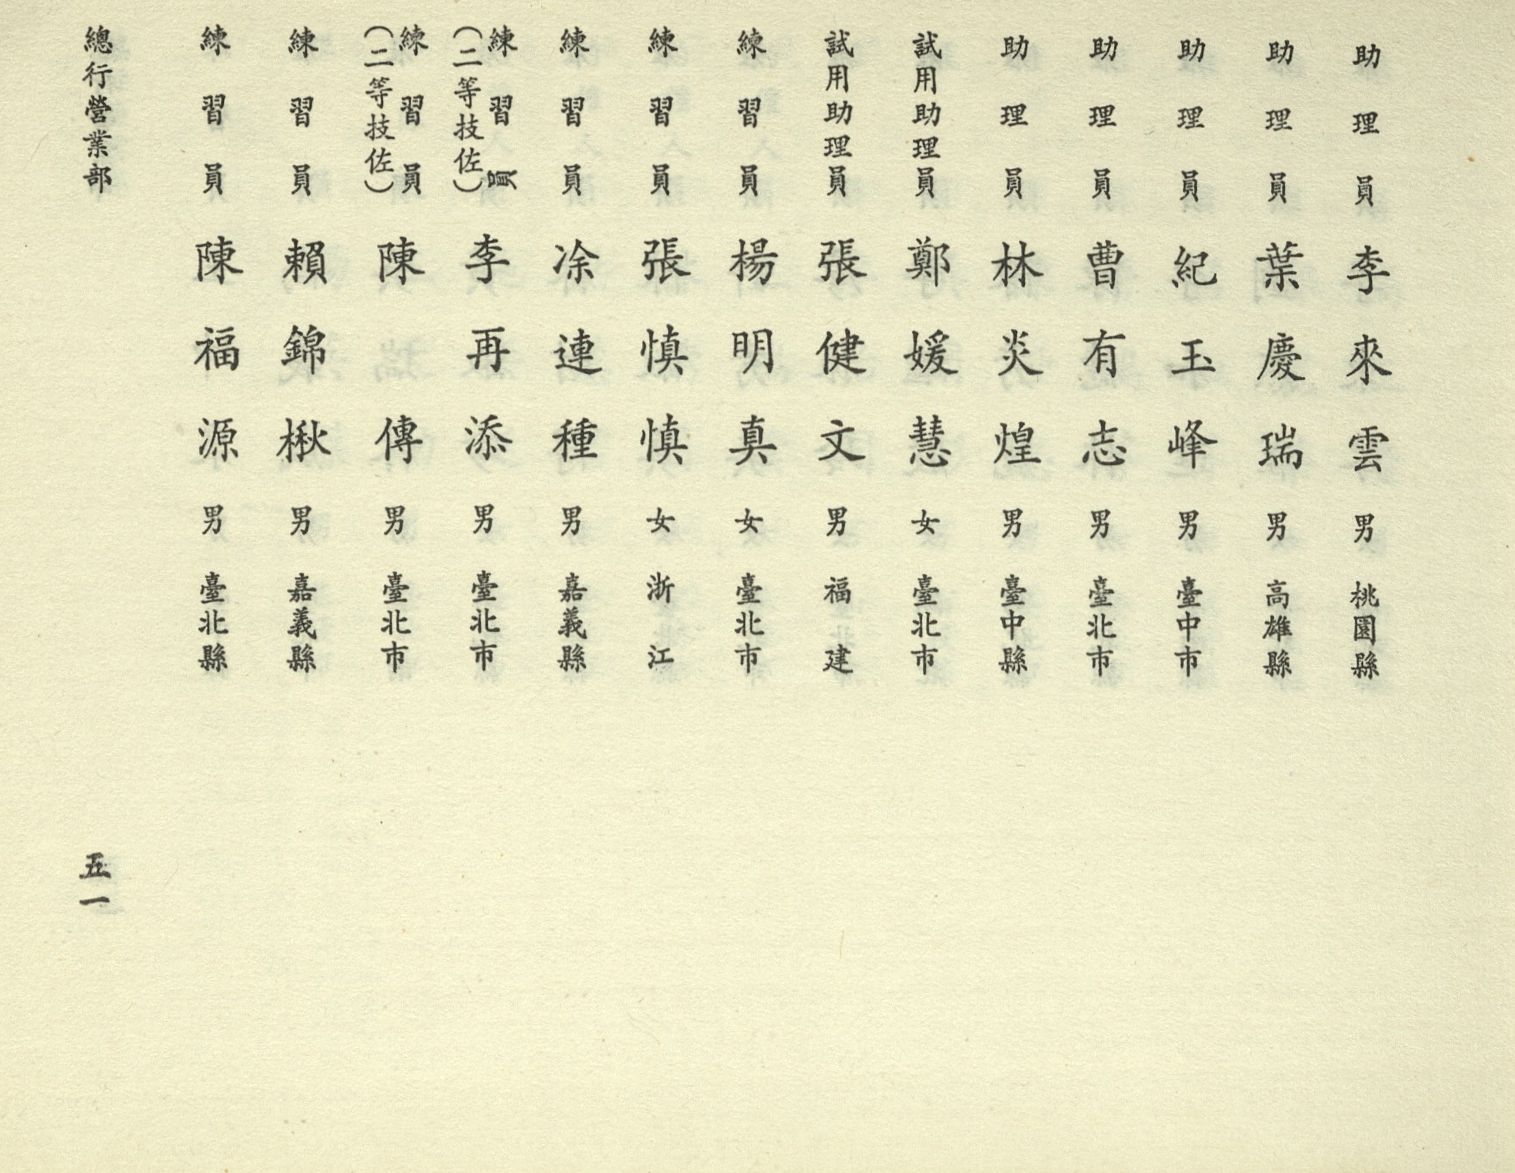 助理員 李來雲 男 桃園縣
助理員 葉慶瑞 男 高雄縣
助理員 紀玉峰 男 臺中市
助理員 曹有志 男 臺北市
助理員 林炎煌 男 臺中縣
試用助理員 鄭媛慧 女 臺北市
試用助理員 張健文 男 福建
練習員 楊明真 女 臺北市
練習員 張慎慎 女 浙江
練習員 凃連種 男 嘉義縣
練習員(二等技佐) 李再添 男 臺北市
練習員(二等技佐) 陳傳 男 臺北市
練習員 賴錦楸 男 嘉義縣
練習員 陳福源 男 臺北縣
總行營業部 五一